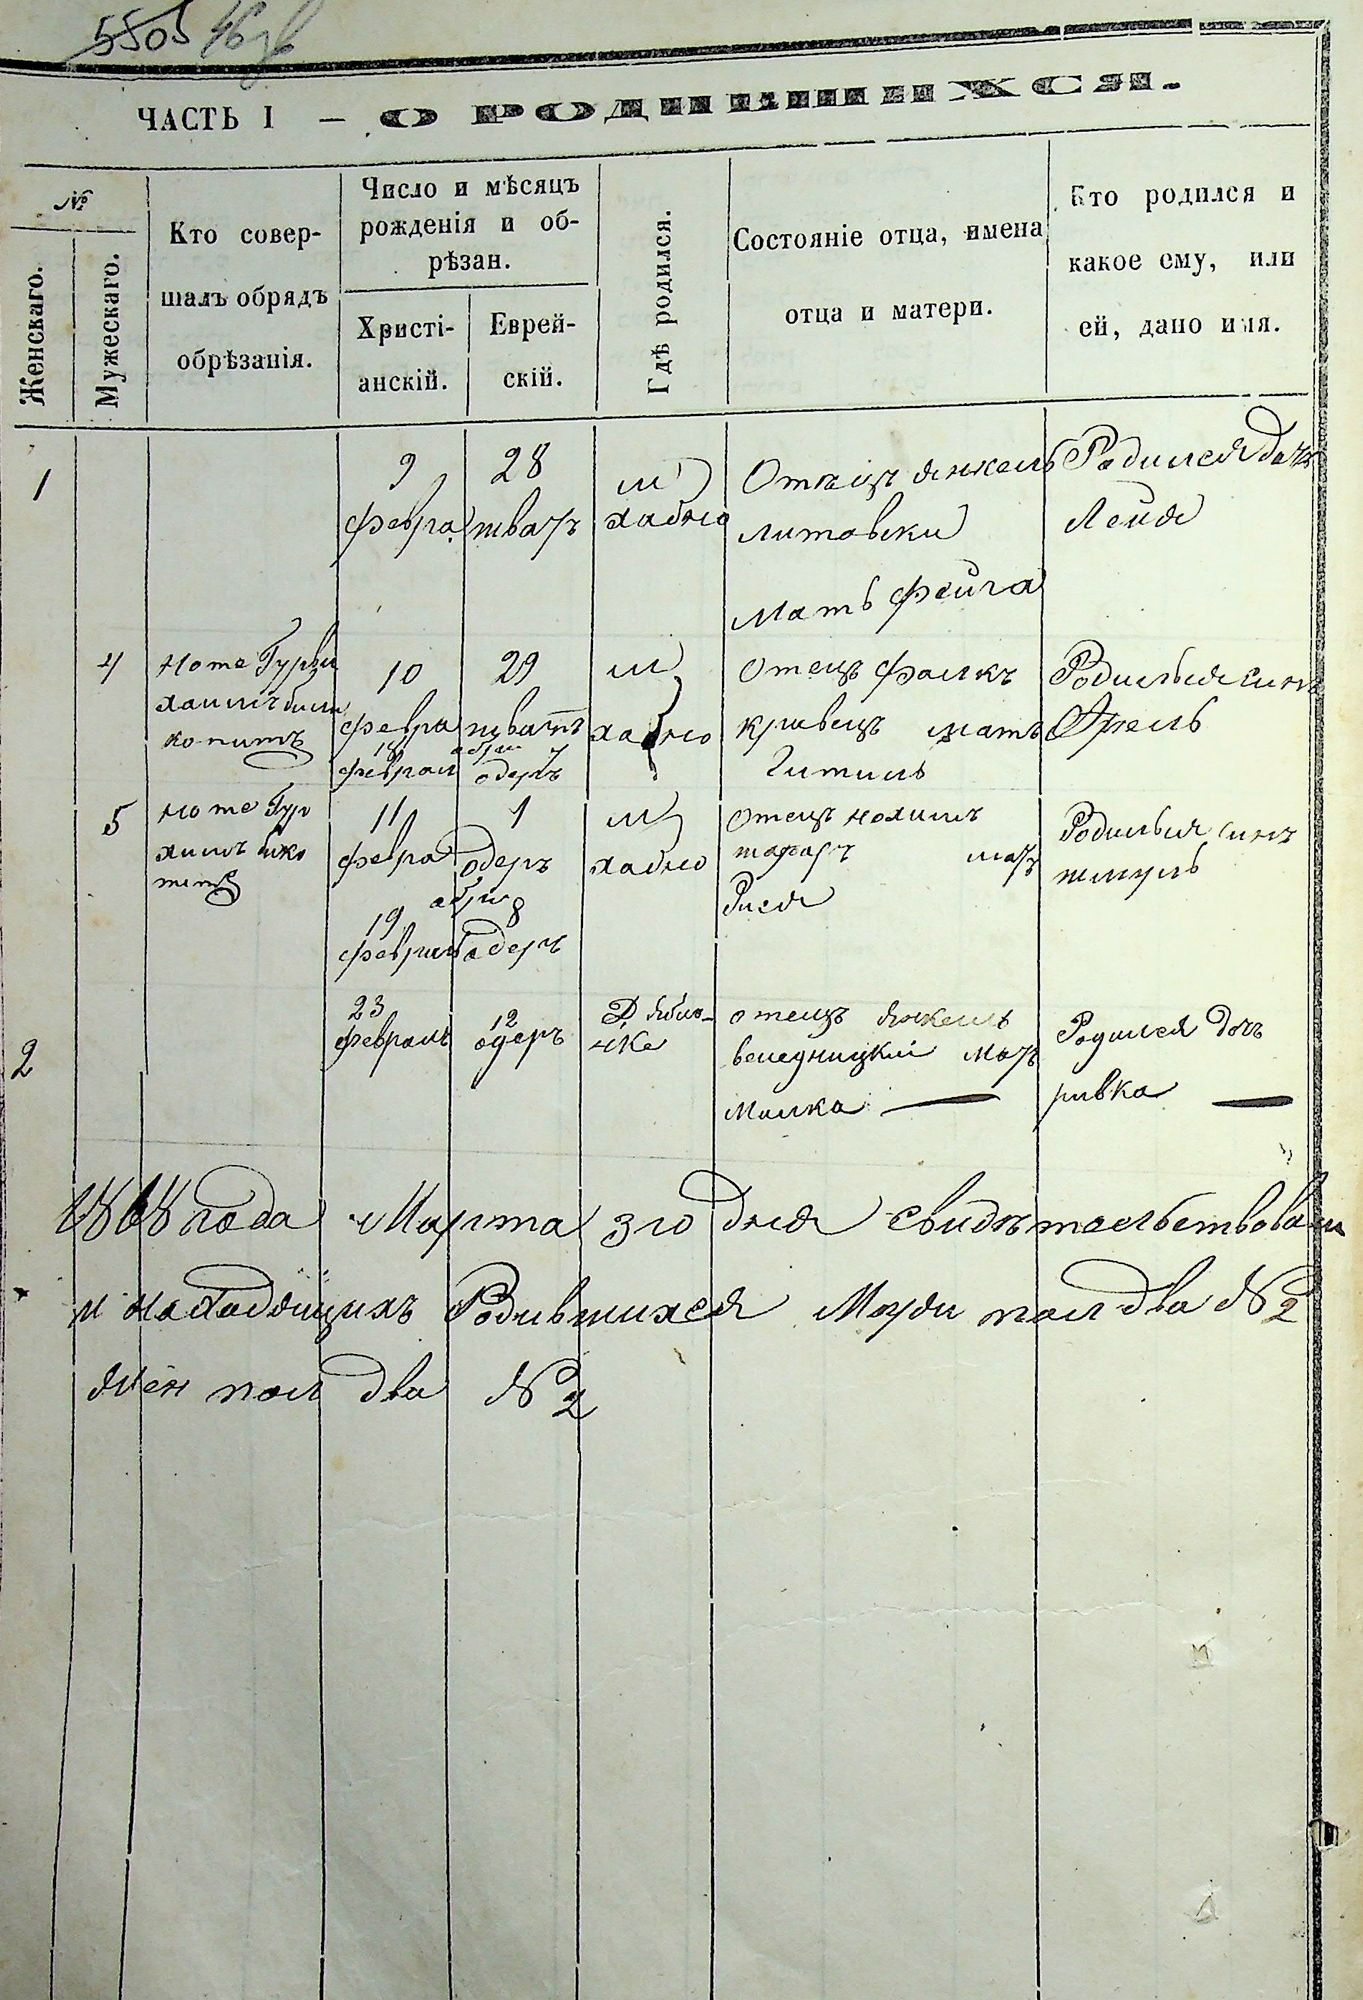 5505
ЧАСТЬ I — О РОДИВШИХСЯ.
№
Женскаго.
Мужескаго.
Кто совер-
шалъ обрядъ
обрѣзанія.
Число и мѣсяцъ
рожденія и об-
рѣзан.
Христі-
анскій.
Еврей-
скій.
Гдѣ родился.
Состояніе отца, имена
отца и матери.
Кто родился и
какое ему, или
ей, дано имя.
1
9
февра
28
шватъ
м
хабно
Отецъ Янкель
Литовски
Мать Фейга
Родилася дочь
Лейя
4
Ноте Гурви
хаимъ
копитъ
10
февра
18
феврал
29
шватъ
обрез
7
одеръ
м
хабно
Отецъ Фалкъ
кравецъ мать
Гитиль
Родилься синъ
Фрель
5
Ноте Гур
хаимъ
11
февра
19
феврал
1
одеръ
обрез
8
адеръ
м
хабно
Отецъ Нохимъ
мать
Рися
Родилься синъ
шмуль
2
23
февраль
12
одеръ
Д яблон-
ке
отецъ Янкель
веледницкий мать
Малка —
Родился дочь
ривка —
1868 года Марта 3го дня свидѣтельствовали
и находящихъ Родившихся Мужи пол два № 2
жен пол два № 2